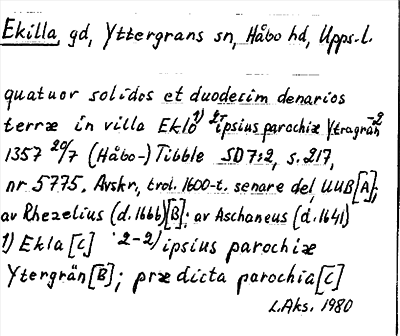 Ekilla, gd, Yttergrans sn, Håbo hd, Upps. l.
quatuor solidos et duodecim denarios
terræ in villa Eklo 1) 2-ipsius parochiæ Ytragrän-2
1357 20/7 (Håbo-) Tibble SD 7:2, s. 217,
nr 5775. Avskr, trol. 1600-t. senare del, UUB [A];
av Rhezelius (d. 1666) [B]; av Aschaneus (d. 1641)
1) Ekla [C] 2-2) ipsius parochiæ
Ytergrän [B]; præ dicta parochia [C]
L. Aks. 1980